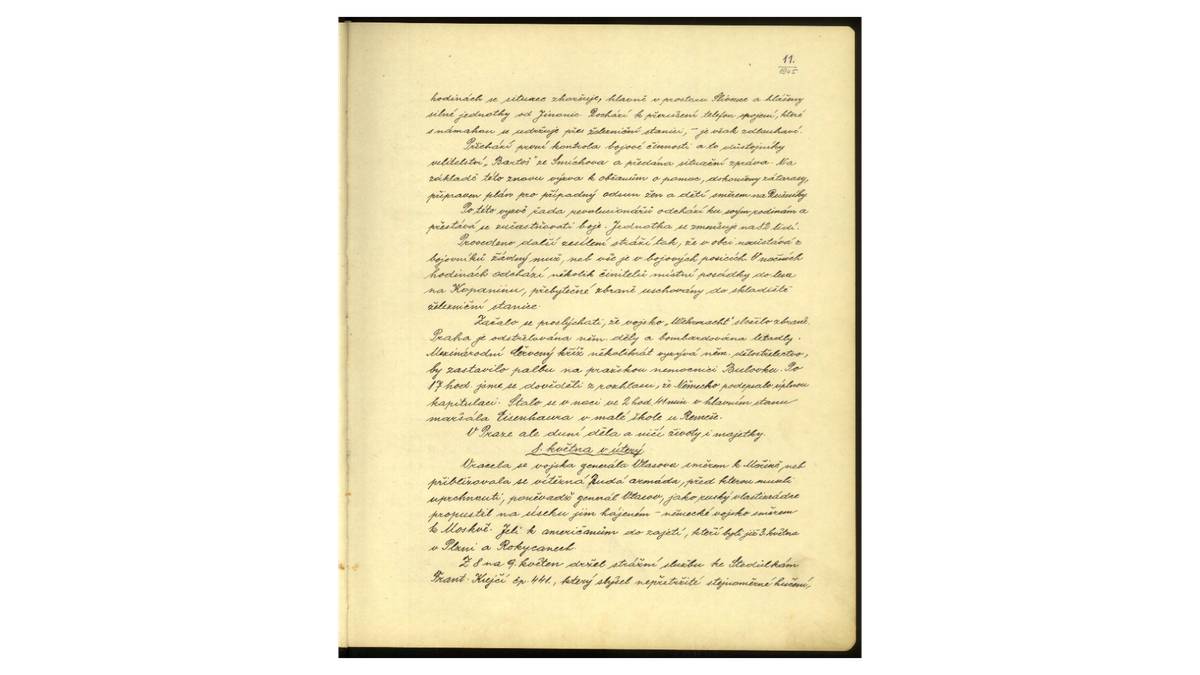 11.
1945
hodinách se situace zhoršuje, hlavně v prostoru Slivence a hlášeny
silné jednotky od Jinonic. Dochází k přerušení telefon. spojení, které
s námahou se udržuje přes železniční stanici, – je však zdlouhavé.
Přechází první kontrola bojové činnosti a to důstojníky
velitelství „Bartoš" ze Smíchova a předána situační zpráva. Na
základě této znovu výzva k občanům o pomoc, dokončeny zátarasy,
připraven plán pro případný odsun žen a dětí směrem na
Po této výzvě řada revolucionářů odchází ku svým rodinám a
přestává se zúčastňovati boje. Jednotka se zmenšuje na lidí.
Provedeno další zesílení stráží tak, že v obci nezůstává z
bojovníků žádný muž, neb vše je v bojových posicích. V nočních
hodinách odchází několik činitelů místní posádky do lesa
na Kopaninu, přebytečné zbraně uschovány do skladiště
železniční stanice.
Začalo se proslýchati, že vojsko „Wehrmacht" složilo zbraně.
Praha je odstřelována něm. děly a bombardována letadly.
Mezinárodní červený kříž několikrát vyzývá něm. dělostřelectvo,
by zastavilo palbu na pražskou nemocnici Bulovku. Po
17 hod. jsme se dověděli z rozhlasu, že Německo podepsalo úplnou
kapitulaci. Stalo se v noci ve 2 hod. 41 min. v hlavním stanu
maršála Eisenhaura v malé škole u Remeše.
V Praze ale duní děla a ničí životy i majetky.
8. května v úterý
Vracela se vojska generála Vlasova směrem k Mořině, neb
přibližovala se vítězná Rudá armáda, před kterou museli
uprchnouti, poněvadž generál Vlasov, jako ruský vlastizrádce
propustil na úseku jím hájeném – německé vojsko směrem
k Moskvě. Jeli k američanům do zajetí, kteří byli již 3 května
v Plzni a Rokycanech.
Z 8 na 9. květen držel strážní službu ke Stodůlkám
Frant. Krejčí čp. 441., který slyšel nepřetržité stejnoměrné hučení,